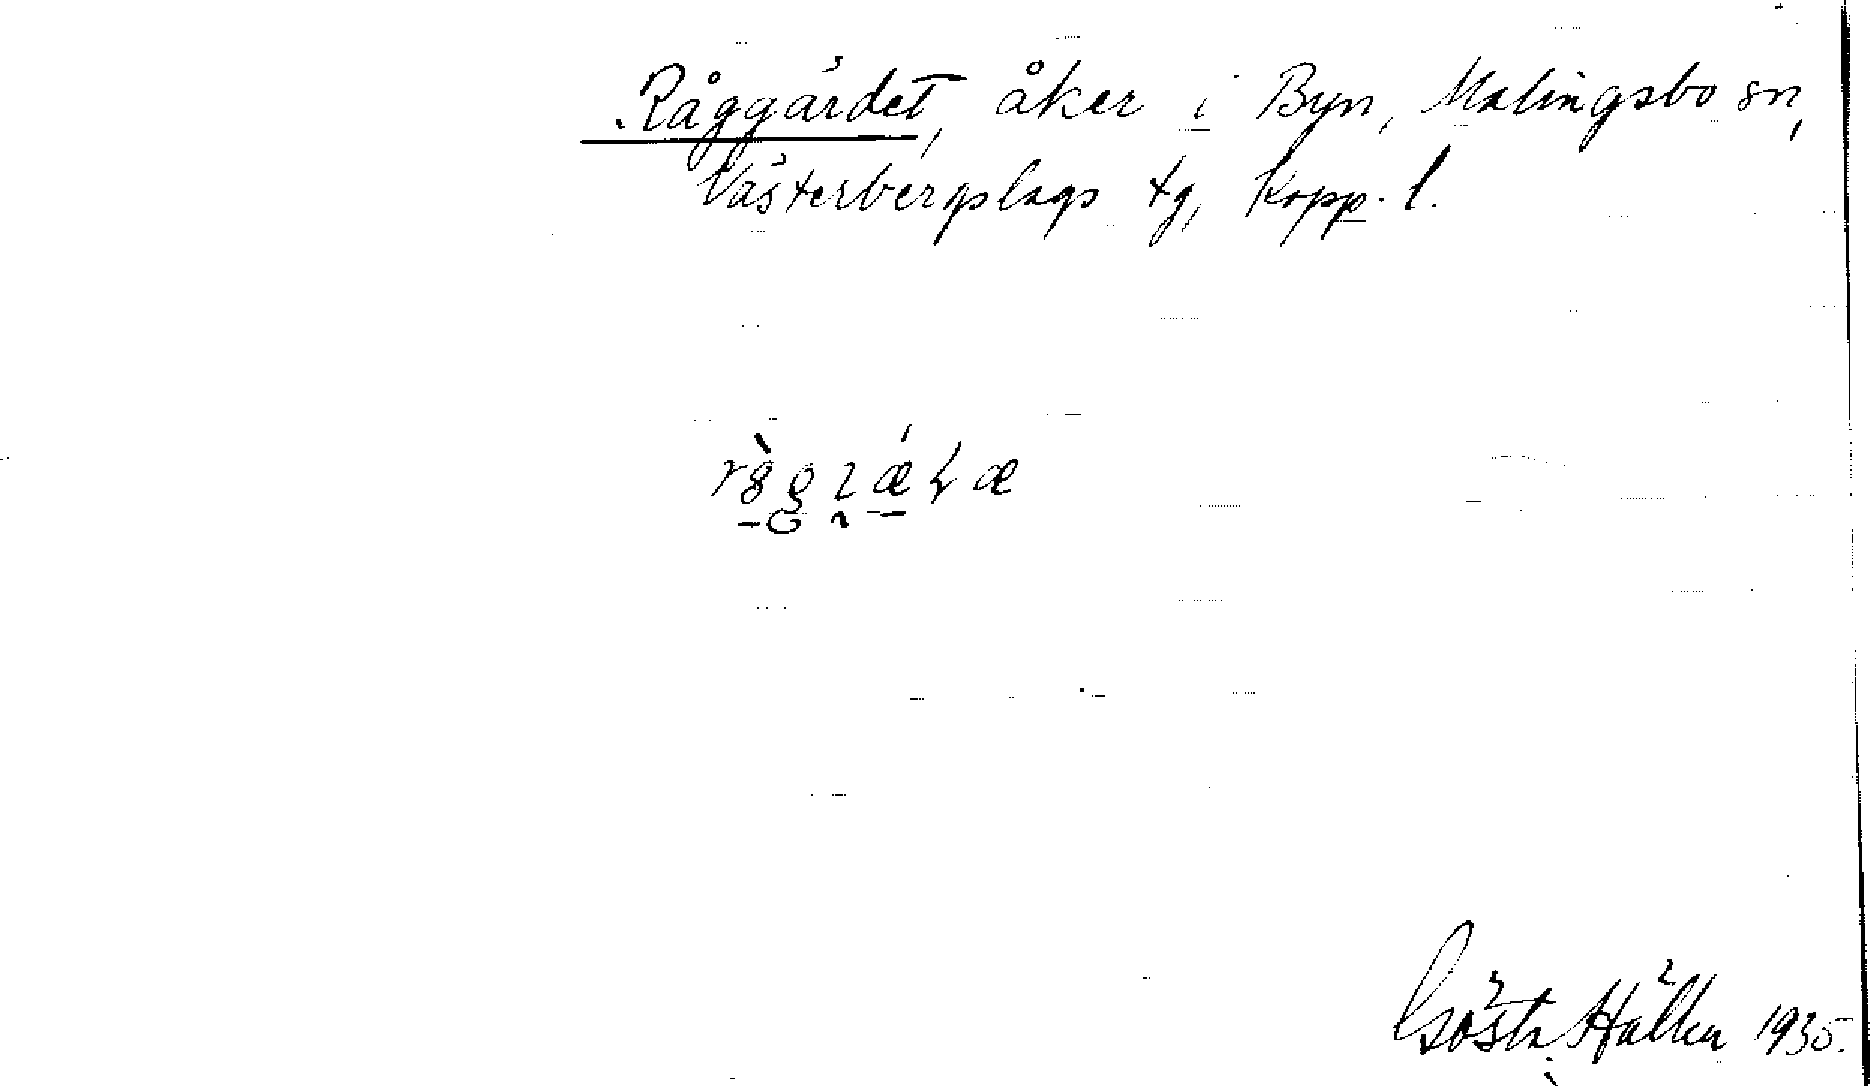 Råggärdet, åker i Byn, Malingsbo sn,
Västerbergslags tg, Kopp. l.
Gösta Hällen 1935.